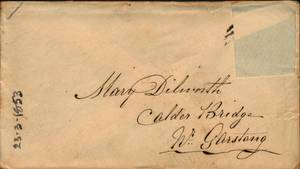 Mary Dilworth
Calder Bridge
Nr. Garstang
23-3-1853